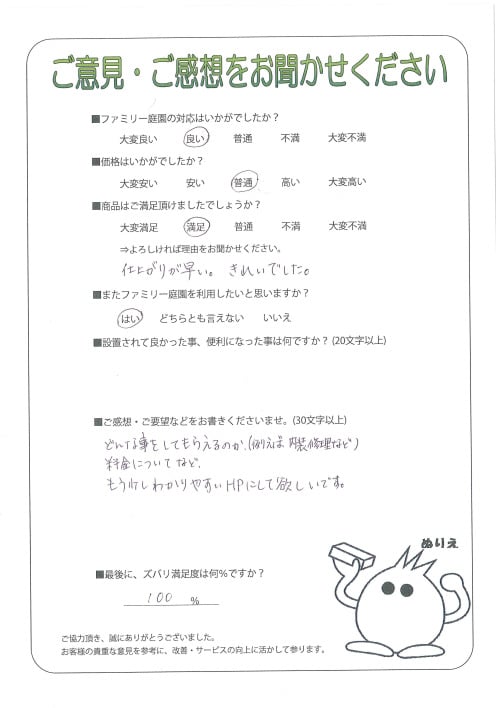 ご意見・ご感想をお聞かせください
■ファミリー庭園の対応はいかがでしたか？
大変良い 良い 普通 不満 大変不満
■価格はいかがでしたか？
大変安い 安い 普通 高い 大変高い
■商品はご満足頂けましたでしょうか？
大変満足 満足 普通 不満 大変不満
⇒よろしければ理由をお聞かせください。
仕上がりが早い。きれいでした。
■またファミリー庭園を利用したいと思いますか？
はい どちらとも言えない いいえ
■設置されて良かった事、便利になった事は何ですか？(20文字以上)
■ご感想・ご要望などをお書きくださいませ。(30文字以上)
どんな事をしてもらえるのか、(例えば 内装修理など)
料金について など、
もう少しわかりやすいHPにして欲しいです。
ぬりえ
■最後に、ズバリ満足度は何％ですか？
100 %
ご協力頂き、誠にありがとうございました。
お客様の貴重な意見を参考に、改善・サービスの向上に活かして参ります。